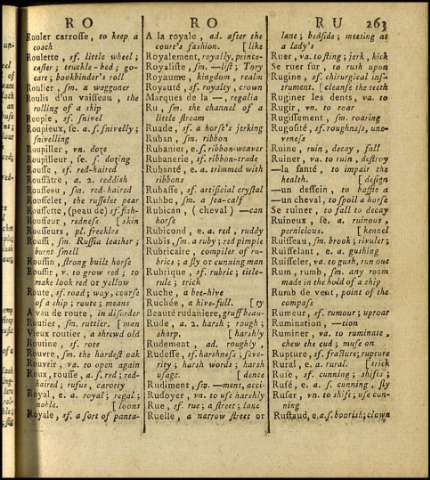 R O
R O
R U
263
Rouler carrosse, to keep a
coach
Roulette, sf. little wheel;
caster; truckle-bed; go-
cart; bookbinder's roll
Roulier, sm. a waggoner
Roulis d'un vaisseau, the
rolling of a ship
Roupie, sf. snivel
Roupieux, se. a. s. snivelly;
snivelling
Roupiller, vn. doze
Roupilleur, se. s. dozing
Rousse, sf. red-haired
Roussâtre, a. 2. reddish
Rousseau, sm. red-haired
Rousselet, the russelet pear
Roussette, (peau de) sf. fish-
Rousseur, redness [skin
Rousseurs, pl. freckles
Roussi, sm. Russia leather;
burnt smell
Roussin, strong built horse
Roussir, v. to grow red; to
make look red or yellow
Route, sf. road; way; course
of a ship; route; means
A vau de route, in disorder
Routier, sm. rutter. [man
Vieux routier, a shrewd old
Routine, sf. rote
Rouvre, sm. the hardest oak
Rouvrir, va. to open again
Roux, rousse, a. s. red; red-
haired; rufus, caroty
Royal, e. a. royal; regal;
noble. [loons
Royale, sf. a sort of panta-
A la royale, ad. after the
court's fashion. [like
Royalement, royally, prince-
Royaliste, sm.—ist; Tory
Royaume, kingdom, realm
Royauté, sf. royalty, crown
Marques de la —, regalia
Ru, sm. the channel of a
little stream
Ruade, sf. a horse's jerking
Ruban, sm. ribbon
Rubanier, e. s. ribbon-weaver
Rubanerie, sf. ribbon-trade
Rubanté, e. a. trimmed with
ribbons
Rubasse, sf. artificial crystal
Rubbe, sm. a sea-calf
Rubican, (cheval) —can
horse
Rubicond, e. a. red, ruddy
Rubis, sm. a ruby; red pimple
Rubricaire, compiler of ru-
brics; a sly or cunning man
Rubrique, sf. rubric; title-
rule; trick
Ruche, a bee-hive
Ruchée, a hive-full. [ty
Beauté rudaniere, gruff beau-
Rude, a. 2. harsh; rough;
sharp. [harshly
Rudement, ad. roughly,
Rudesse, sf. harshness, seve-
rity; harsh words; harsh
usage. [dence
Rudiment, sm. —ment, acci-
Rudoyer, va. to use harshly
Rue, sf. rue; a street; lane
Ruelle, a narrow street or
lane; bedside; meeting at
a lady's
Ruer, va. to fling; jerk, kick
Se ruer sur, to rush upon
Rugine, sf. chirurgical inf-
strument. [cleanse the teeth
Ruginer les dents, va. to
Rugir, vn. to roar
Rugissement, sm. roaring
Rugosité, sf. roughness, une-
veness
Ruine, ruin, decay, fall
Ruiner, va. to ruin, destroy
—la santé, to impair the
health. [design
—un dessein, to baffle a
—un cheval, to spoil a horse
Se ruiner, to fall to decay
Ruineux, se. a. ruinous,
pernicious. [kennel
Ruisseau, sm. brook; rivulet;
Ruisselant, e. a. gushing
Ruisseler, vn. to gush, run out
Rum, rumb, sm. any room
made in the hold of a ship
Rumb de vent, point of the
compass
Rumeur, sf. rumour; uproar
Rumination, —tion
Ruminer, va. to ruminate,
chew the cud; muse on
Rupture, sf. fracture; rupture
Rural, e. a. rural. [trick
Ruse, sf. cunning; shifts;
Rusé, e. a. s. cunning, sly
Ruser, vn. to shift; use cun-
ning
Rustaud, e. a. s. boorish; clown